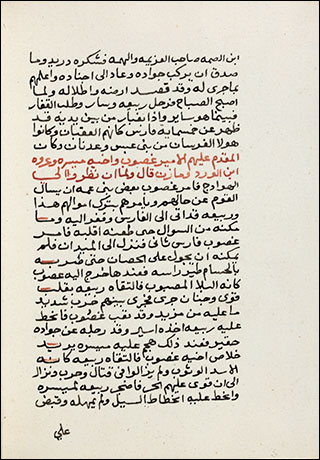 ابن الصمه صاحب العزيمه والهمه فشكره دريد وما
صدق ان يركب جواده وعاد الى اجناده واعلمهم
بما جرى له وقد قصد ارضه واطلاله ولما
اصبح الصباح فرحل ربيعه وسار وطلب القفار
فبينما هو ساير واذا بغبار من بين يديه قد
ظهر عن خمسماية فارس كانهم العقبان وكانوا
هولا الفرسان من بنى عبس وعدنان وكان
المقدم عليهم الامير غصوب واخيه ميسره وعروه
ابن الورد ومازن قال ولما ان نظروا الى
الهوادج فامر غصوب بعض بنى عمه ان يسال
القوم عن حالهم ويامرهم بترك اموالهم هذا
وربيعه قد اتى الى الفارس وقفز اليه وما
مكنه من السوال حتى طعنه اقلبه فامر
غصوب فارس ثانى فنزل الى الميدان فلم
يمكنه ان يجول على الحصان حتى ضربه
بالحسام طير راسه فعندها خرج اليه غصوب
كانه البلا المصبوب فالتقاه ربيعه بقلب
قوى وجنان جرى فجرى بينهم حرب شديد
ما عليه من مزيد وقد تعب غصوب فانحط
عليه ربيعه اخذه اسير وقد رجله عن جواده
حقير فعند ذلك هجم عليه ميسره يريد
خلاص اخيه غصوب فالتقاه ربيعه كانه
الاسد الوثوب ولم يزالوا فى قتال وحرب ونزال
الى ان قوى عليهم الحر فاضحى ربيعه لميسره
وانحط عليه انحطاط السيل ولم يمهله وقبض
على